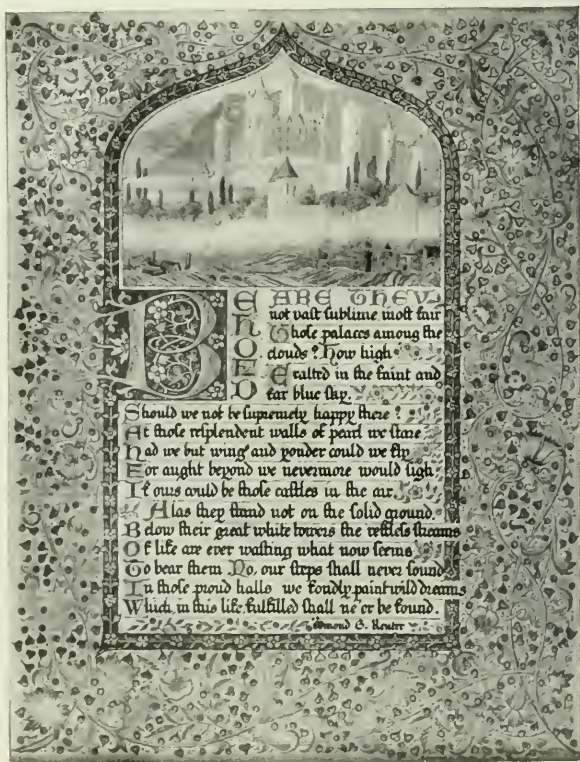 BEHOLD ARE THEY
not vast sublime, most fair
Those palaces among the
clouds? How high
Exalted in the faint and
far blue sky.
Should we not be supremely happy there?
At those resplendent walls of pearl we stare
Had we but wings and yonder could we fly
For aught beyond we nevermore would sigh
If ours could be those castles in the air.
Alas they stand not on the solid ground.
Below their great white towers the restless streams
Of life are ever wasting what now seems
To bear them No, our steps shall never sound
In those proud halls we fondly paint wild dreams
Which, in this life fulfilled shall ne'er be found.
Edmond G. Reuter